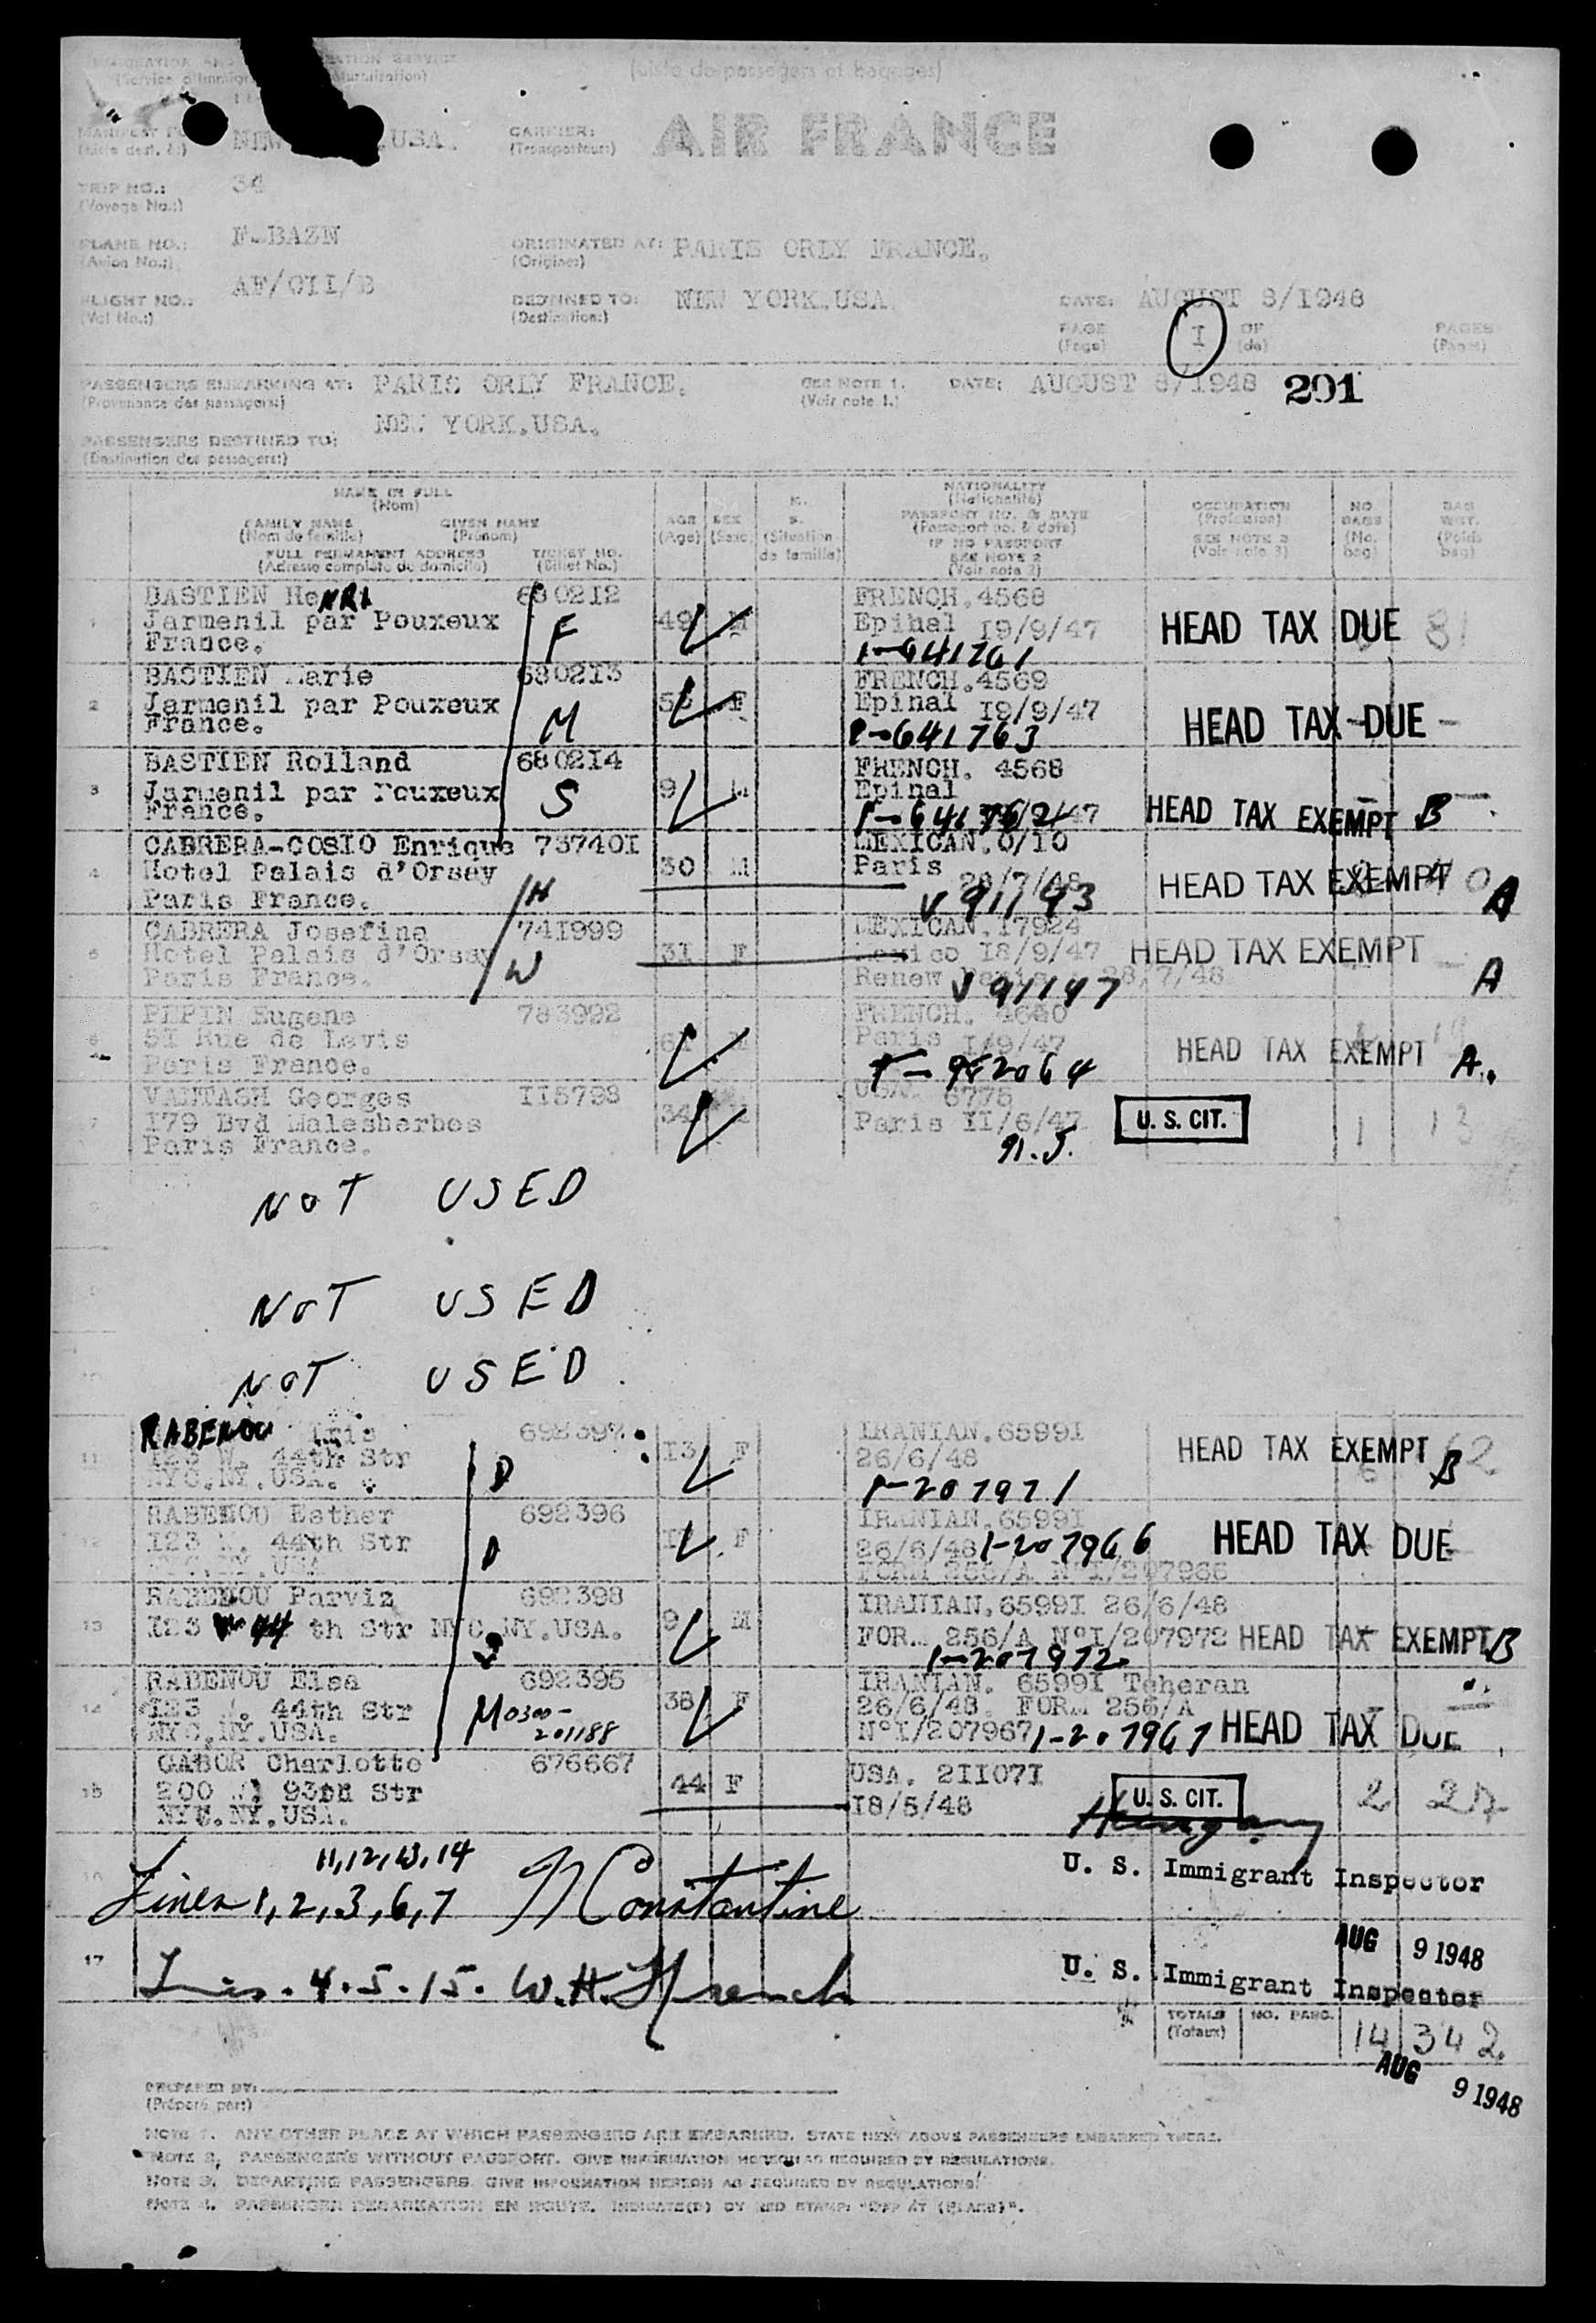 (Liste de passagers et bagages)
NEW USA.
CARRIER:
(Transporteur:)
AIR FRANCE
TRIP NO.: 34
(Voyage No.:)
PLANE NO.: F-BAZN
(Avion No.:)
ORIGINATED AT: PARIS ORLY FRANCE.
(Origine:)
FLIGHT NO.: AF/OII/B
(Vol No.:)
DESTINED TO: NEW YORK.USA
(Destination:)
DATE: AUGUST 8/1948
PAGE I OF PAGES
(Page) (de) (Pages)
PASSENGERS EMBARKING AT: PARIS ORLY FRANCE.
(Provenance des passagers:)
SEE NOTE 1. DATE: AUGUST 8/1948 201
(Voir note 1.)
NEW YORK.USA.
PASSENGERS DESTINED TO:
(Destination des passagers:)
NAME IN FULL
(Nom)
FAMILY NAME GIVEN NAME
(Nom de famille) (Prénom)
FULL PERMANENT ADDRESS TICKET NO.
(Adresse complète de domicile) (Billet No.)
AGE SEX M. S.
(Age) (Sexe) (Situation de famille)
NATIONALITY
(Nationalité)
PASSPORT NO. & DATE
(Passeport no. & date)
IF NO PASSPORT
SEE NOTE 2
(Voir note 2)
OCCUPATION
(Profession)
SEE NOTE 3
(Voir note 3)
NO. BAGS
(No. bag)
BAG WGT.
(Poids bag)
1 BASTIEN HeNRI 680212 FRENCH.4568
Jarmenil par Pouxeux F 49 M Epinal I9/9/47 HEAD TAX DUE 31
France. 1-641761
2 BASTIEN Marie 680213 FRENCH.4569
Jarmenil par Pouxeux F Epinal I9/9/47 HEAD TAX DUE
France. M P-641763
3 BASTIEN Rolland 680214 FRENCH. 4568
Jarmenil par Pouxeux S 9 M Epinal HEAD TAX EXEMPT B
France.
4 CABRERA-COSIO Enrique 73740I MEXICAN.0/10
Hotel Palais d'Orsay 30 M Paris 28/7/48 HEAD TAX EXEMPT A
Paris France. H V 911793
5 CABRERA Josefina 74I999 MEXICAN.I7924
Hotel Palais d'Orsay 31 F Mexico I8/9/47 HEAD TAX EXEMPT
Paris France. W Renew Paris 28/7/48 A
V 91147
6 PEPIN Eugene 783992 FRENCH.
5I Rue de Levis 61 M Paris I/9/47 HEAD TAX EXEMPT A.
Paris France.
7 Georges II5798 USA. 6775
I79 Bvd Malesherbes 34 M Paris II/6/47 U. S. CIT. 1 13
Paris France. N.J.
NOT USED
NOT USED
NOT USED
11 RABENOU Iris 692397 IRANIAN.6599I
I23 W. 44th Str D I3 F 26/6/48 HEAD TAX EXEMPT B
NYC.NY.USA. 1-207971
12 RABENOU Esther 692396 IRANIAN.6599I
I23 W. 44th Str D F 26/6/48 1-207966 HEAD TAX DUE
NYC.NY.USA FORM 256/A N°I/207966
13 RABENOU Parviz 692398 IRANIAN.6599I 26/6/48
I23 W 44 th Str NYC.NY.USA. 9 M FORM 256/A N°I/207972 HEAD TAX EXEMPT B
S 1-207972
14 RABENOU Elsa 692395 IRANIAN. 6599I Teheran
I23 W. 44th Str M 0300- 38 F 26/6/48. FORM 256/A
NYC.NY.USA. 201188 N°I/207967 1-207967 HEAD TAX DUE
15 GABOR Charlotte 676667 USA. 2II07I
200 W 93rd Str 44 F I8/5/48 U. S. CIT. 2 27
NYC.NY.USA. Hungary
11,12,13,14
Lines 1,2,3,6,7 N Constantine U. S. Immigrant Inspector
AUG 9 1948
17 Lines. 4.5.15. W.H. French U. S. Immigrant Inspector
TOTALS NO. PASG. 14 342
(Totaux)
AUG 9 1948
PREPARED BY:
(Préparé par:)
NOTE 1. ANY OTHER PLACE AT WHICH PASSENGERS ARE EMBARKED. STATE NEXT ABOVE PASSENGERS EMBARKED THERE.
NOTE 2. PASSENGERS WITHOUT PASSPORT. GIVE INFORMATION HEREON AS REQUIRED BY REGULATIONS.
NOTE 3. DEPARTING PASSENGERS. GIVE INFORMATION HEREON AS REQUIRED BY REGULATIONS.
NOTE 4. PASSENGER DEBARKATION EN ROUTE. INDICATE(D) BY RED STAMP: "OFF AT (PLACE)".